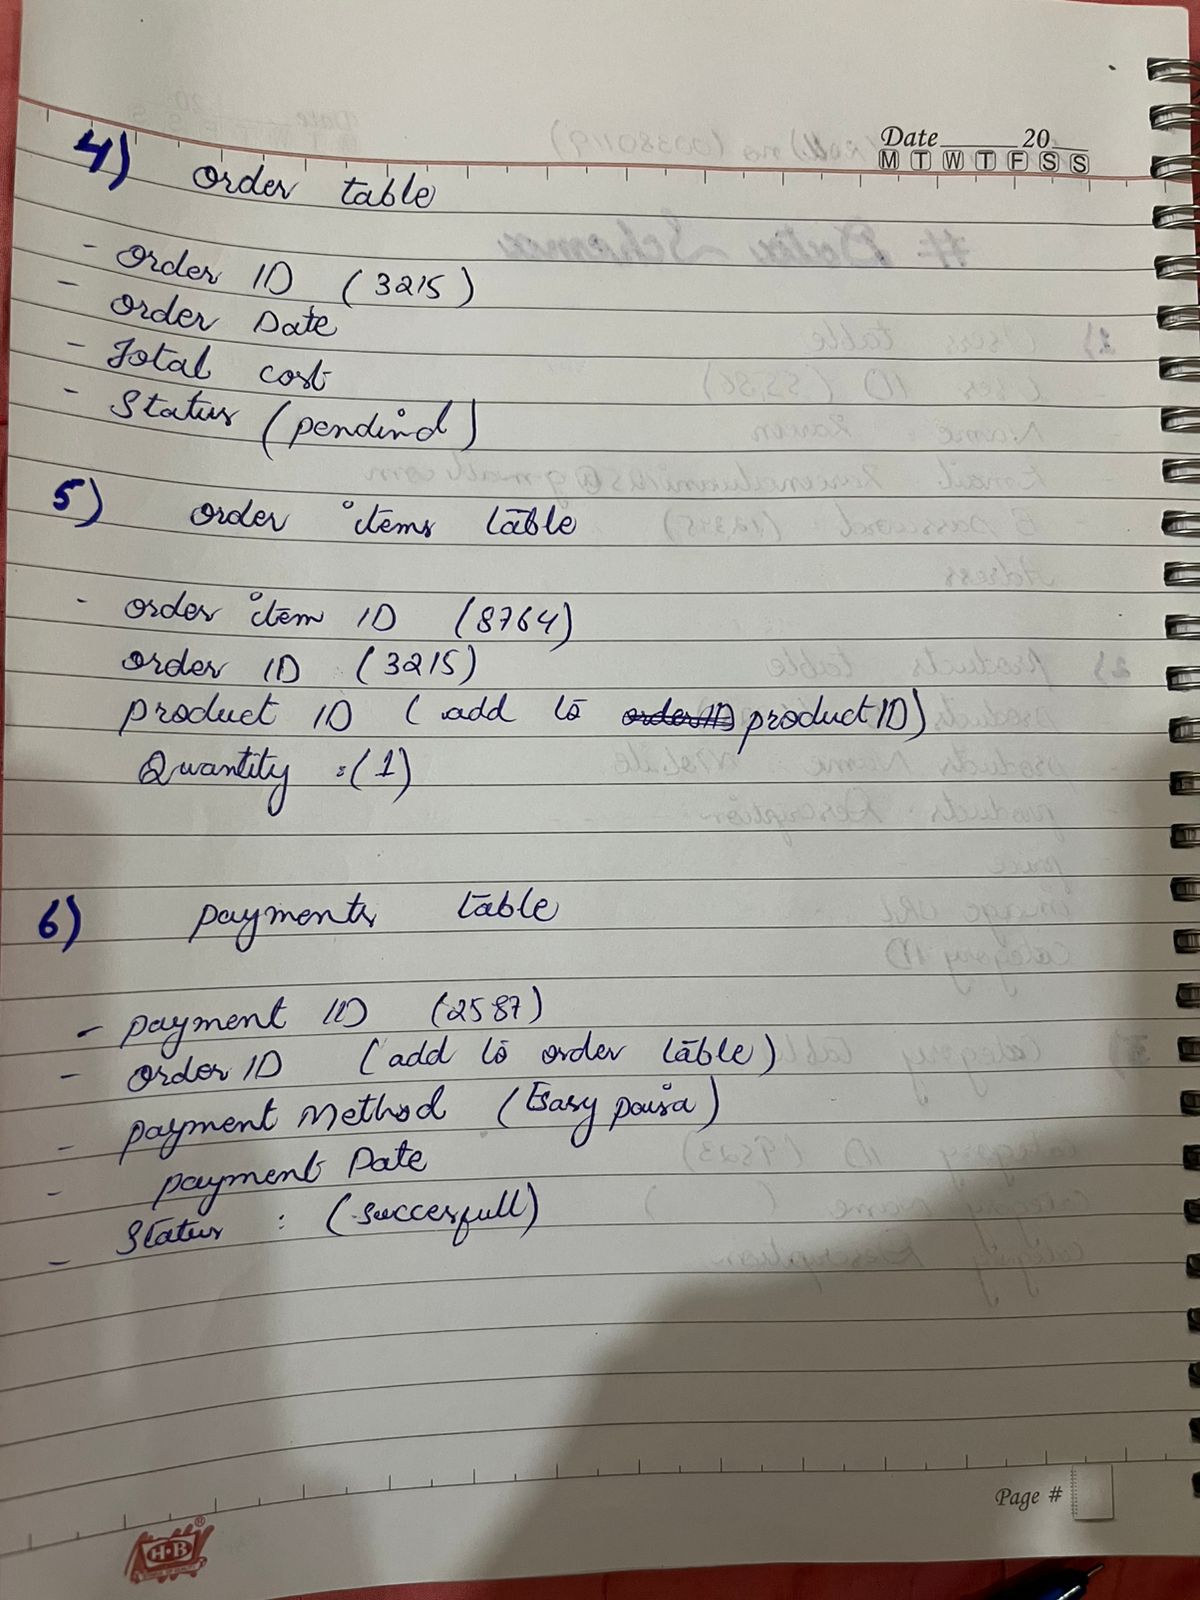 Date 20
M T W T F S S
4) order table
- order ID (3215)
- order Date
- Total cost
- Status (pendind)
5) order items table
- order item ID (8764)
order ID (3215)
product ID (add to order ID product ID)
Quantity : (1)
6) payments table
- payment ID (2587)
- order ID (add to order table)
- payment Method (Easy paisa)
- payment Date
- Status : (succesfull)
Page #
H·B